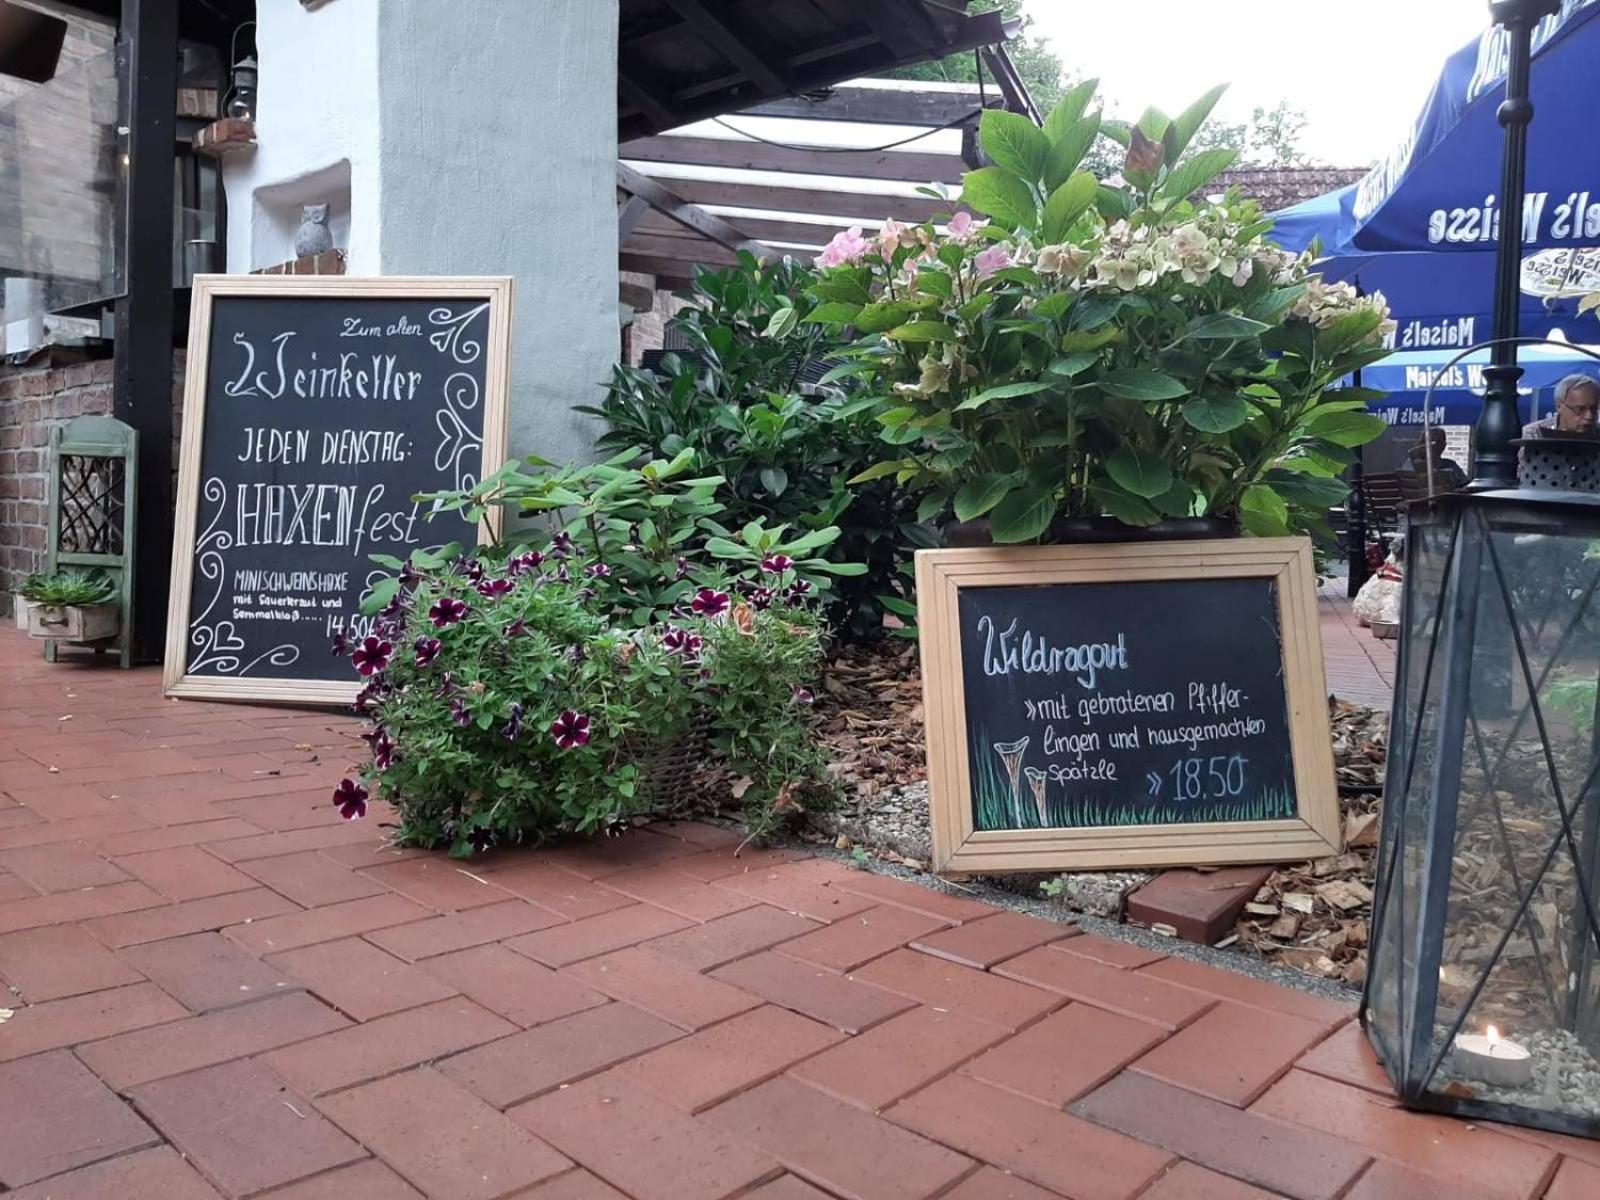 Zum alten
Weinkeller
JEDEN DIENSTAG:
HAXENfest
MINISCHWEINSHAXE
mit Sauerkraut und
Semmelkloß..... 14,50€
Wildragout
»mit gebratenen Pfiffer-
lingen und hausgemachten
Spätzle
» 18,50
Maisel's Weisse
Maisel's
Maisel's We